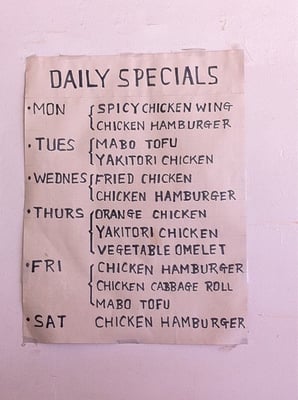 DAILY SPECIALS
•MON { SPICY CHICKEN WING
CHICKEN HAMBURGER
•TUES { MABO TOFU
YAKITORI CHICKEN
•WEDNES { FRIED CHICKEN
CHICKEN HAMBURGER
•THURS { ORANGE CHICKEN
YAKITORI CHICKEN
VEGETABLE OMELET
•FRI { CHICKEN HAMBURGER
CHICKEN CABBAGE ROLL
MABO TOFU
•SAT CHICKEN HAMBURGER